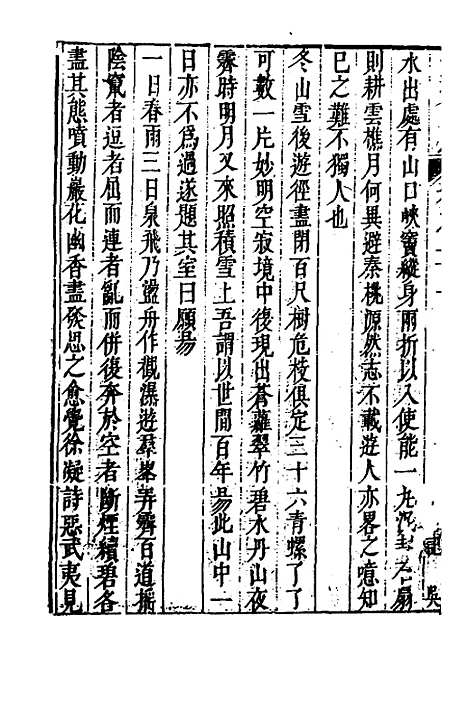 水出處有山口峽竇縱身兩折以入使能一丸泥封之扃
則耕雲樵月何異避秦桃源然志不載遊人亦畧之噫知
巳之難不獨人也
冬山雪後遊徑盡閉百尺樹危枝俱定三十六青螺了了
可數一片妙明空寂境中復現出蒼蘿翠竹碧水丹山夜
霽時明月又來照積雪上吾謂以世間百年昜此山中一
日亦不爲過遂題其室曰願昜
一日春雨三日泉飛乃盪舟作觀瀑遊羣峯弄霽百道搖
陰竄者逗者屈而連者亂而併復奔於空者斷煙續碧各
盡其態噴動巖花幽香盡發思之愈覺徐凝詩惡武夷見